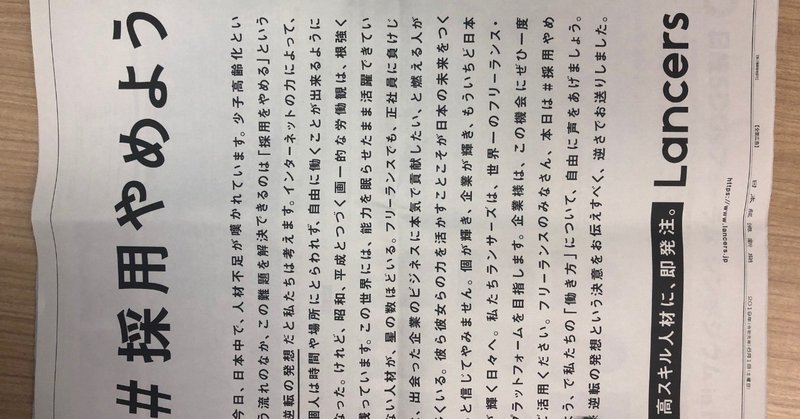 #採用やめよう
今日、日本中で、人材不足が嘆かれています。少子高齢化とい
う流れのなか、この難題を解決できるのは「採用をやめる」という
逆転の発想だと私たちは考えます。インターネットの力によって、
個人は時間や場所にとらわれず、自由に働くことが出来るように
なった。けれど、昭和、平成とつづく画一的な労働観は、根強く
残っています。この世界には、能力を眠らせたまま活躍できてい
ない人材が、星の数ほどいる。フリーランスでも、正社員に負けじ
と、出会った企業のビジネスに本気で貢献したい、と燃える人が
くいる。彼ら彼女らの力を活かすことこそが日本の未来をつく
と信じてやみません。個が輝き、企業が輝き、もういちど日本
が輝く日々へ。私たちランサーズは、世界一のフリーランス・
プラットフォームを目指します。企業様は、この機会にぜひ一度
ご活用ください。フリーランスのみなさん、本日は#採用やめ
よう、で私たちの「働き方」について、自由に声をあげましょう。
※逆転の発想という決意をお伝えすべく、逆さでお送りしました。
高スキル人材に、即発注。 Lancers
https://www.lancers.jp